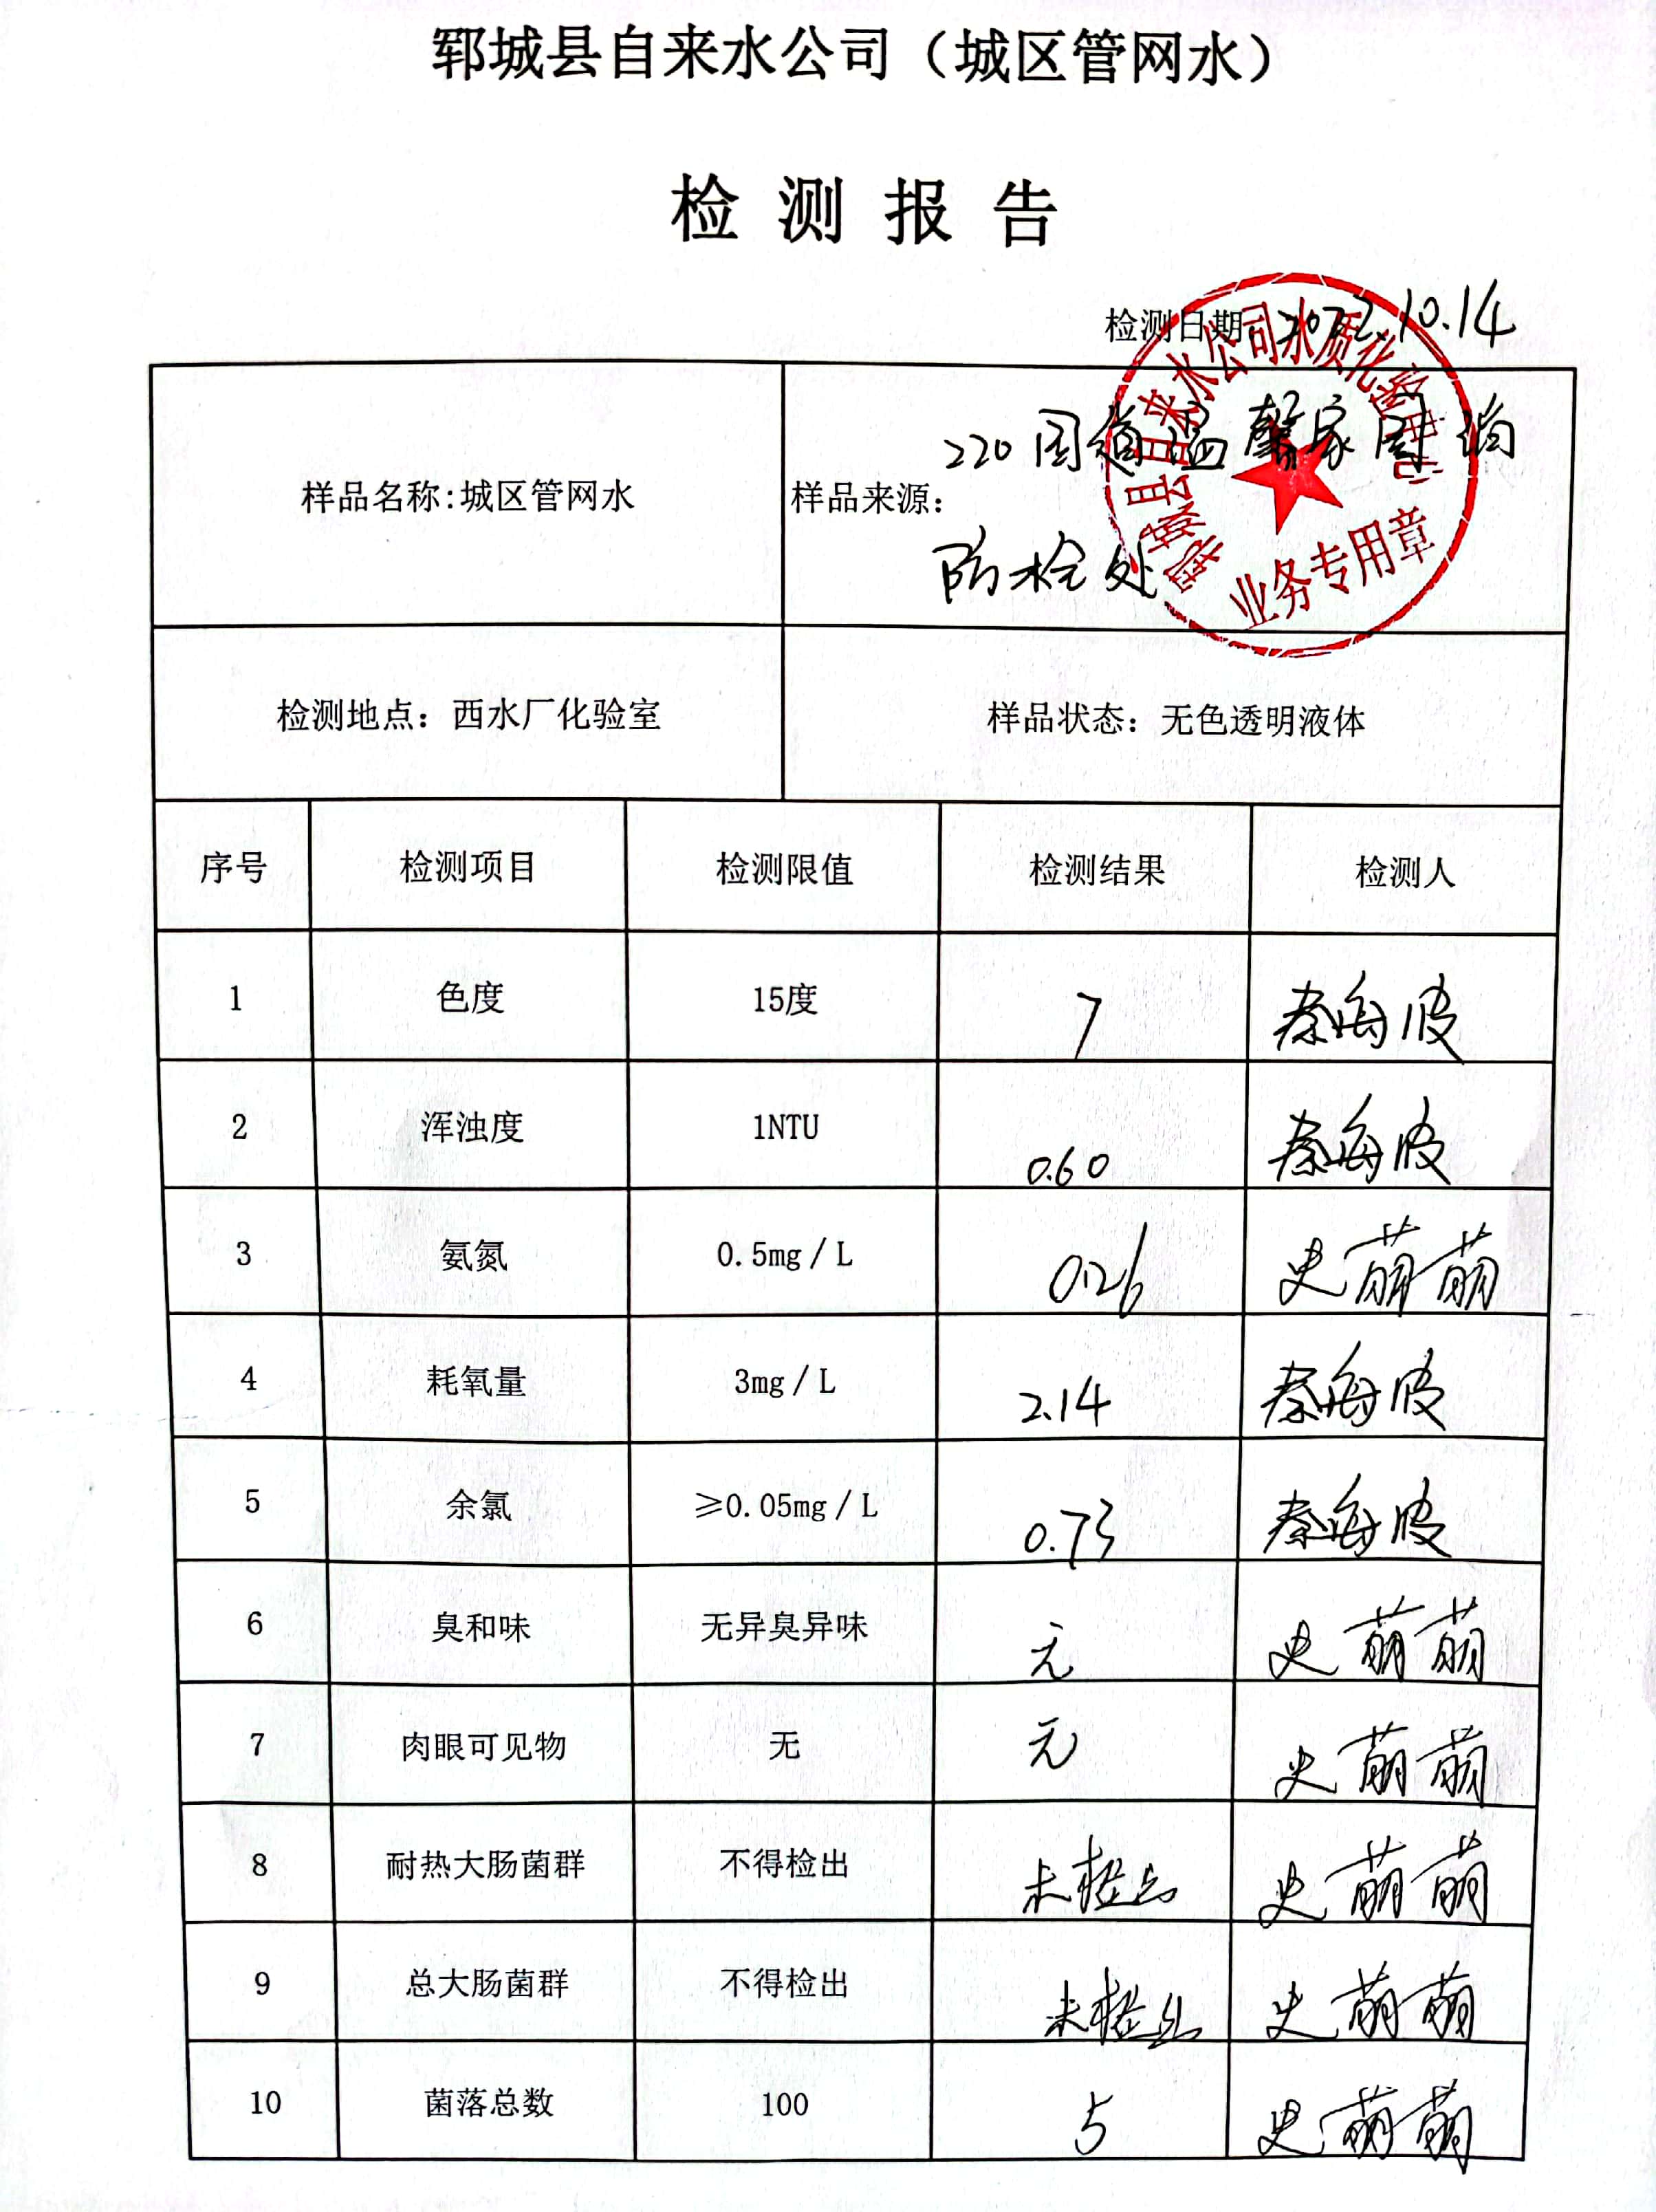 郓城县自来水公司（城区管网水）
检测报告
检测日期：2022.10.14
样品名称:城区管网水
样品来源：220国道温馨家园消
防栓处
郓城县自来水公司水质化验中心
业务专用章
检测地点：西水厂化验室
样品状态：无色透明液体
序号 检测项目 检测限值 检测结果 检测人
1 色度 15度 7 秦海波
2 浑浊度 1NTU 0.60 秦海波
3 氨氮 0.5mg/L 0.26 史萌萌
4 耗氧量 3mg/L 2.14 秦海波
5 余氯 ≥0.05mg/L 0.73 秦海波
6 臭和味 无异臭异味 无 史萌萌
7 肉眼可见物 无 无 史萌萌
8 耐热大肠菌群 不得检出 未检出 史萌萌
9 总大肠菌群 不得检出 未检出 史萌萌
10 菌落总数 100 5 史萌萌